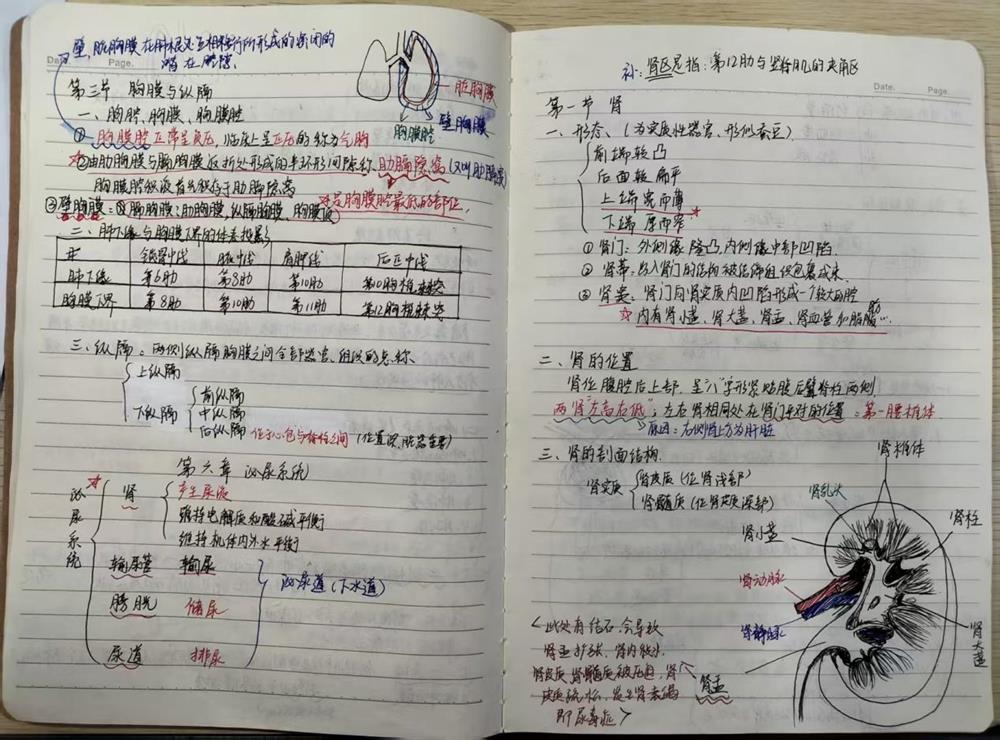 壁、脏胸膜在肺根处互相移行所形成的密闭的
潜在腔隙.
Date. Page.
脏胸膜
壁胸膜
胸膜腔
第三节 胸膜与纵隔
一、胸腔、胸膜、胸膜腔
① 胸膜腔正常呈负压，临床上呈正压的称为气胸
☆②由肋胸膜与膈胸膜反折处形成的半环形间隙称、肋膈隐窝(又叫肋膈窦)
胸膜腔积液首先积存于肋膈隐窝
☆是胸膜腔最低的部位.
③壁胸膜：膈胸膜；肋胸膜、纵膈胸膜、胸膜顶
二、肺下缘与胸膜下界的体表投影
锁骨中线 腋中线 肩胛线 后正中线
肺下缘 第6肋 第8肋 第10肋 第10胸椎棘突
胸膜下界 第8肋 第10肋 第11肋 第12胸椎棘突
三、纵隔：两侧纵隔胸膜之间全部器官、组织的总称.
上纵隔
下纵隔
前纵隔
中纵隔
后纵隔 位于心包与脊柱之间 (位置深,脏器重要)
第六章 泌尿系统
☆
泌尿系统
肾
产生尿液
维持电解质和酸碱平衡
维持机体内外水平衡
输尿管 输尿
膀胱 储尿
尿道 排尿
泌尿道(下水道)
补：肾区是指：第12肋与竖脊肌的夹角区
Date. Page.
第一节 肾
一、形态、(为实质性器官、形似蚕豆)
前端较凸
后面较扁平
上端宽而薄
下端厚而窄☆
① 肾门：外侧缘隆凸,内侧缘中部凹陷.
② 肾蒂：出入肾门的结构被结缔组织包裹成束.
③ 肾窦：肾门向肾实质内凹陷形成一个较大的腔
☆内有肾小盏、肾大盏、肾盂、肾血管和脂肪…
二、肾的位置
肾位腹腔后上部，呈“八”字形紧贴腹后壁脊柱两侧
两肾“左高右低”；左右肾相同处在肾门平对的位置：第一腰椎体
原因：右侧肾上方为肝脏
三、肾的剖面结构.
肾实质
肾皮质(位肾浅部)
肾髓质(位肾实质深部)
肾椎体
肾乳头
肾柱
肾小盏
肾动脉
肾静脉
肾大盏
肾盂
<此处有结石,会导致
肾盂扩张，肾内积水.
肾皮质,肾髓质被压迫，肾
即尿毒症>